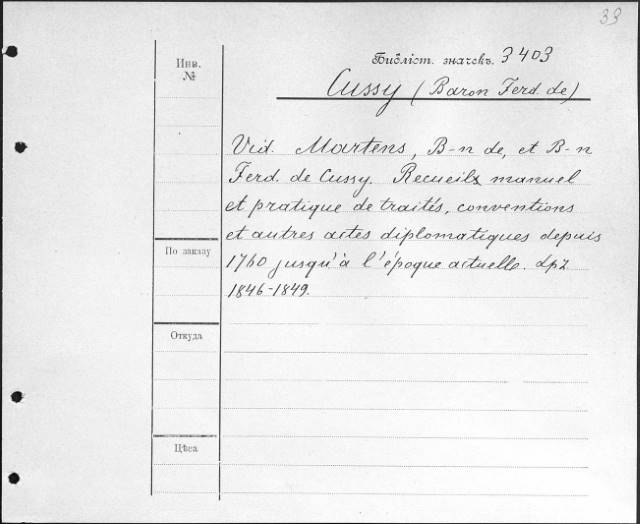 33
Инв. №
Библіот. значекъ. 3403
Cussy (Baron Ferd. de)
Vid. Martens, B-n de, et B-n
Ferd. de Cussy. Recueil manuel
et pratique de traités, conventions
et autres actes diplomatiques depuis
По заказу
1760 jusqu'à l'époque actuelle. Lpz.
1846-1849.
Откуда
Цѣна